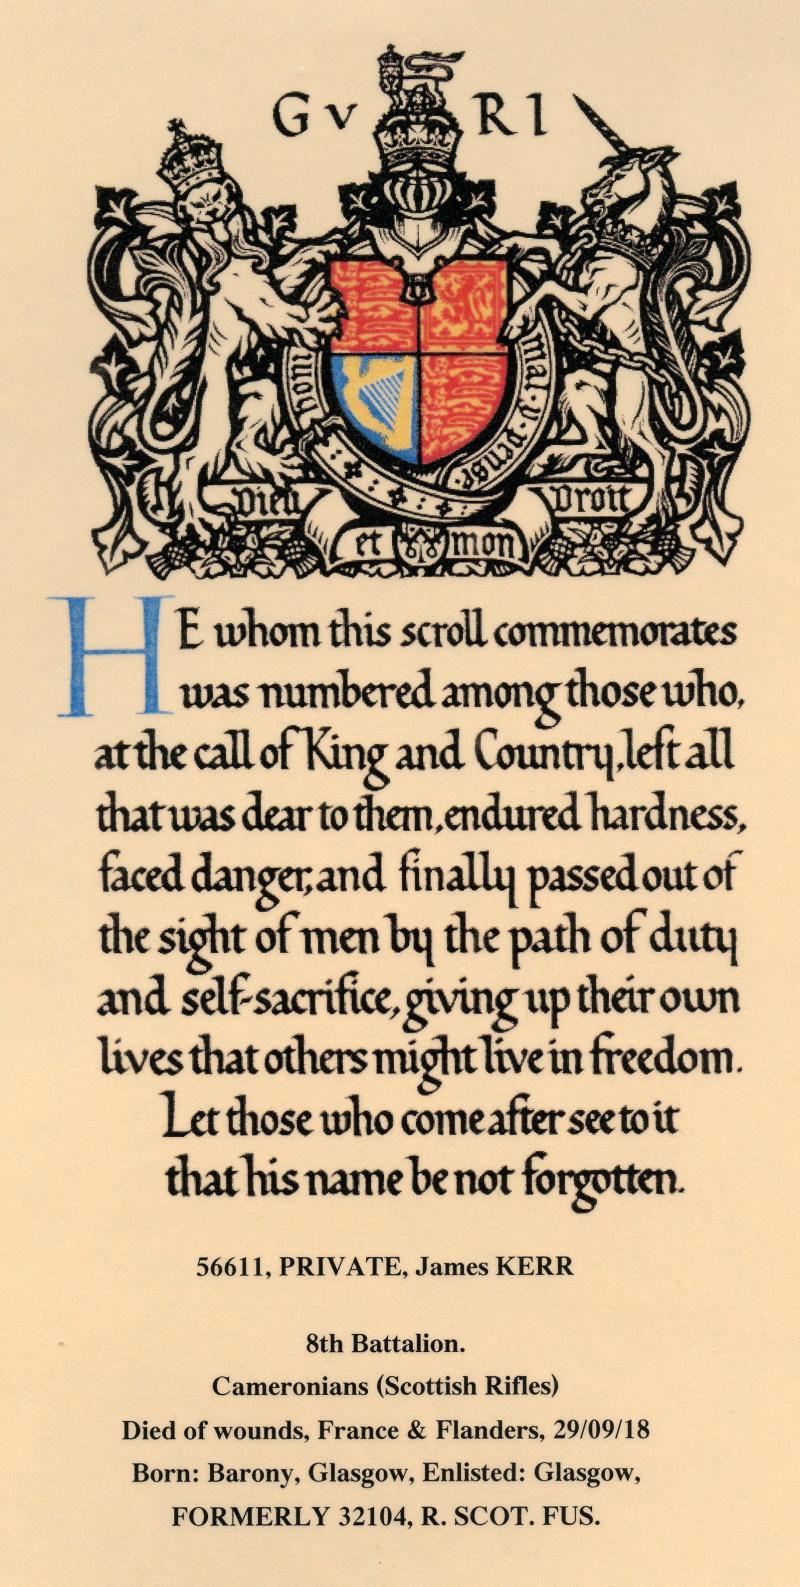 G V R I
hom
mal·y·pense
Dieu
Droit
et mon
HE whom this scroll commemorates
was numbered among those who,
at the call of King and Country, left all
that was dear to them, endured hardness,
faced danger, and finally passed out of
the sight of men by the path of duty
and self-sacrifice, giving up their own
lives that others might live in freedom.
Let those who come after see to it
that his name be not forgotten.
56611, PRIVATE, James KERR
8th Battalion.
Cameronians (Scottish Rifles)
Died of wounds, France & Flanders, 29/09/18
Born: Barony, Glasgow, Enlisted: Glasgow,
FORMERLY 32104, R. SCOT. FUS.